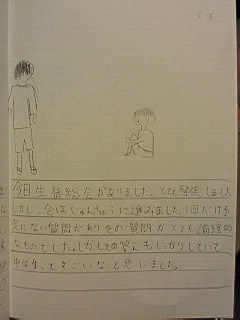 5 8
今日生徒総会がありました。とても緊張しまし
しかし、会はじゅんちょうに進みました。1回だけ予
定にない質問がありその質問がとても論理的
なものでした。しかもその答えもしっかりしていて
中学生ってすごいなと思いました。